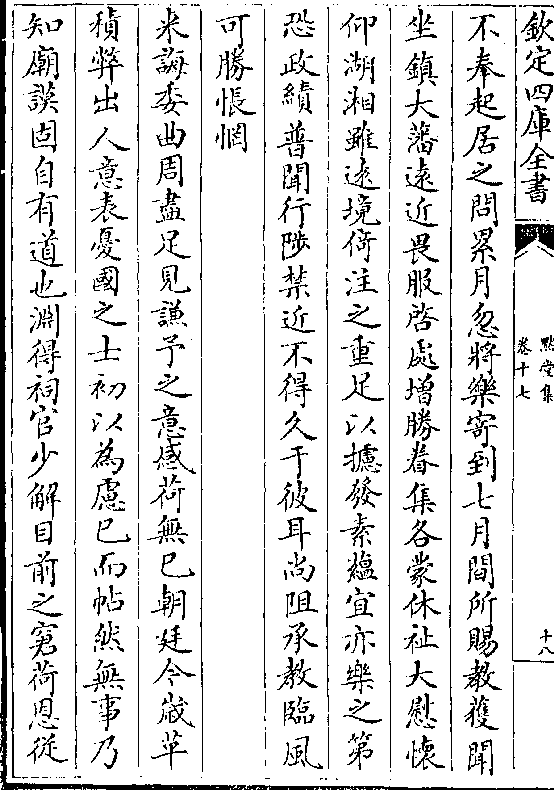 欽定四庫全書
默堂集
卷十七
十八
不奉起居之問累月忽將樂寄到七月間所賜教獲聞
坐鎮大藩遠近畏服啓處增勝眷集各蒙休祉大慰懷
仰湖湘雖遠境倚注之重足以攄發素蘊宜亦樂之第
恐政績普聞行陟禁近不得久于彼耳尚阻承教臨風
可勝悵惘
來誨委曲周盡足見謙予之意感荷無已朝廷今歲革
積弊出人意表憂國之士初以為慮已而帖然無事乃
知廟謨固自有道也淵得祠官少解目前之窘荷恩從